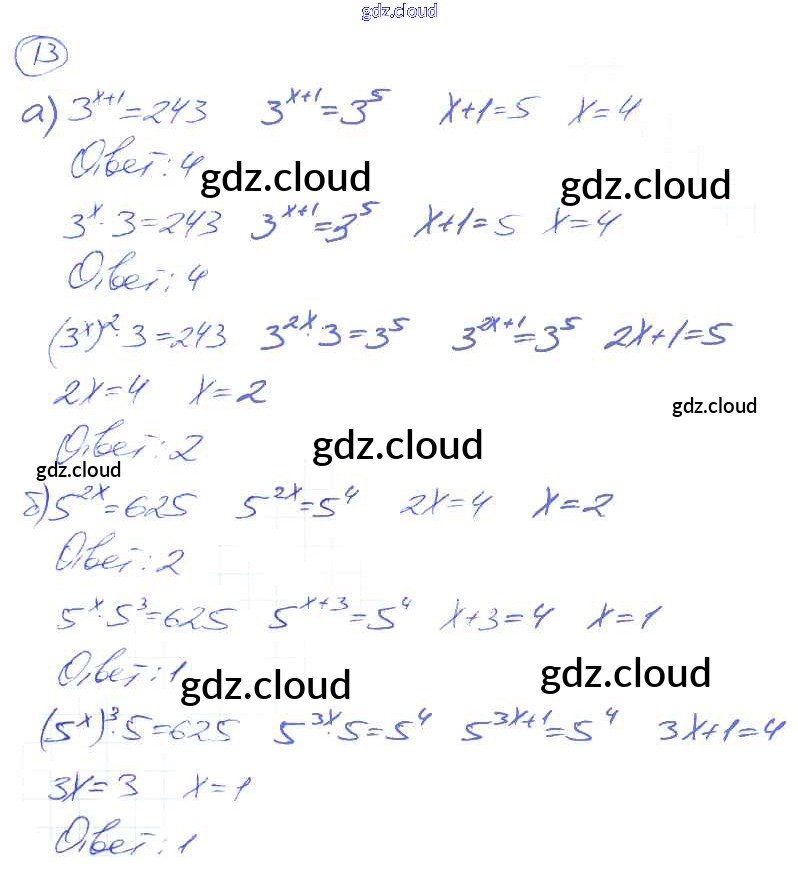 gdz.cloud
13
а) 3^{x+1}=243 3^{x+1}=3^5 x+1=5 x=4
Ответ: 4
gdz.cloud gdz.cloud
3^x·3=243 3^{x+1}=3^5 x+1=5 x=4
Ответ: 4
(3^x)^2·3=243 3^{2x}·3=3^5 3^{2x+1}=3^5 2x+1=5
2x=4 x=2
gdz.cloud
Ответ: 2
gdz.cloud
gdz.cloud
б) 5^{2x}=625 5^{2x}=5^4 2x=4 x=2
Ответ: 2
5^x·5^3=625 5^{x+3}=5^4 x+3=4 x=1
Ответ: 1
gdz.cloud gdz.cloud
(5^x)^3·5=625 5^{3x}·5=5^4 5^{3x+1}=5^4 3x+1=4
3x=3 x=1
Ответ: 1